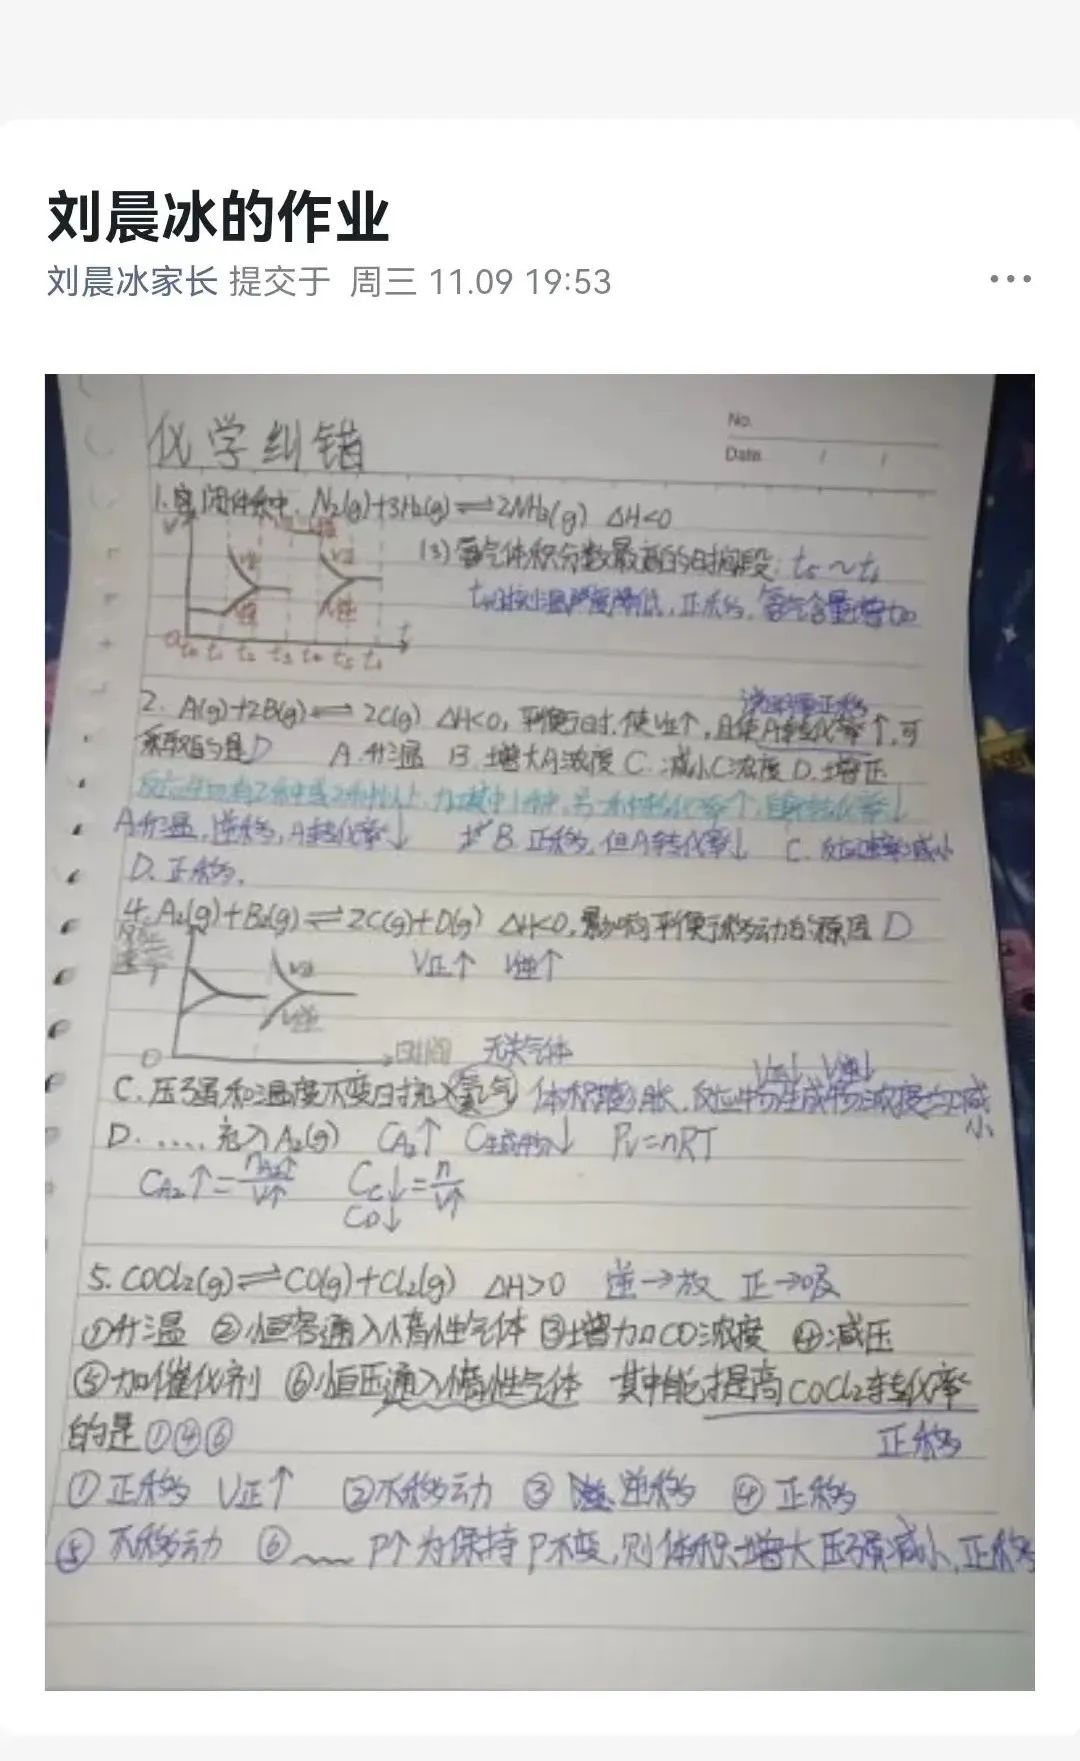 刘晨冰的作业
刘晨冰家长 提交于 周三 11.09 19:53
No.
Date
化学纠错
1. 密闭体系中, N₂(g)+3H₂(g)⇌2NH₃(g) ΔH<0
(3) 氨气体积分数最高的时间段:
正移, 氨气含量增加
2. A(g)+2B(g)⇌2C(g) ΔH<0, 平衡时, 使V正↑, 且使A转化率↑, 可
采取的是D A.升温 B.增大A浓度 C.减小C浓度 D.增压
A升温, 逆移, A转化率↓ B.正移, 但A转化率↓ C.反应速率减小
D.正移.
4. A₂(g)+B₂(g)⇌2C(g)+D(g) ΔH<0, 影响平衡移动的原因 D
V正↑ V逆↑
V正
V逆
时间 无关气体
V正↓ V逆↓
C.压强和温度不变时充入氦气 体积膨胀, 反应物生成物浓度均减小
D. ..... 充入A₂(g) CA₂↑ C生成物↓ PV=nRT
CA₂↑=nA₂↑/V↑ Cc↓=n/V↑
CD↓
5. COCl₂(g)⇌CO(g)+Cl₂(g) ΔH>0 逆→放 正→吸
①升温 ②恒容通入惰性气体 ③增加CO浓度 ④减压
⑤加催化剂 ⑥恒压通入惰性气体 其中能提高COCl₂转化率
的是①④⑥ 正移
①正移 V正↑ ②不移动 ③逆移 ④正移
⑤不移动 ⑥ P个为保持P不变, 则体积增大压强减小, 正移